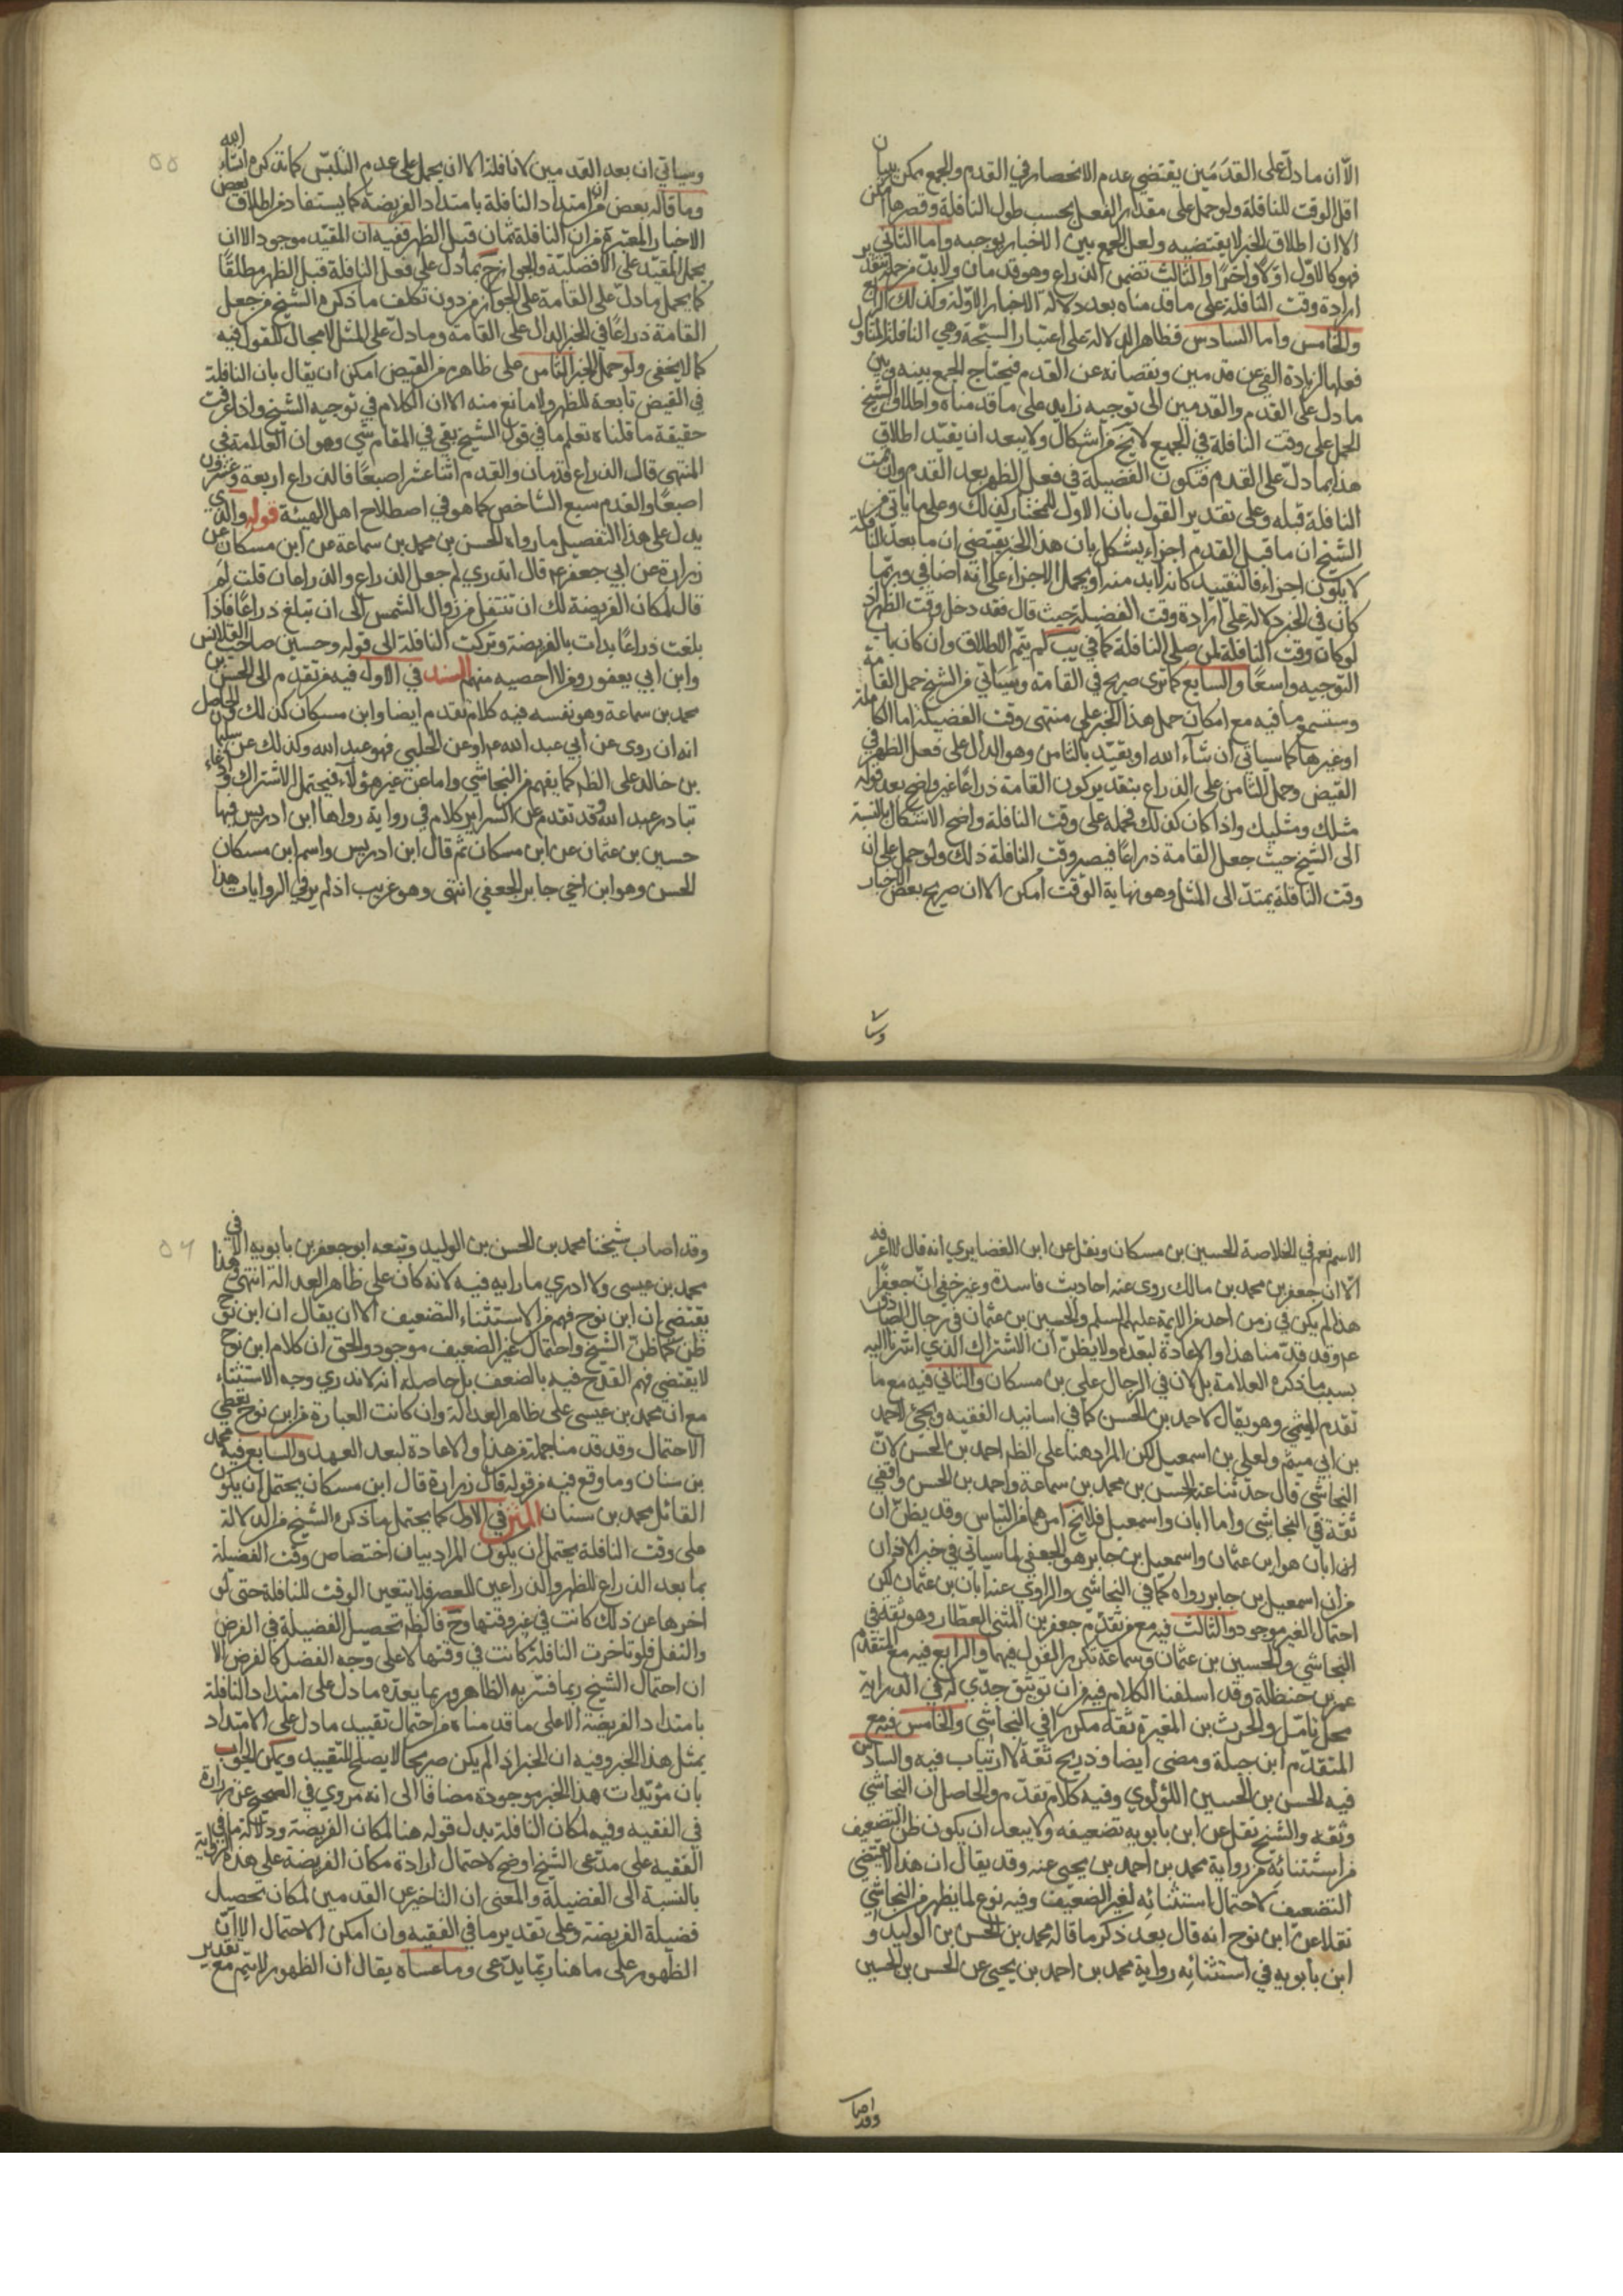 الا ان مادل على القدمين يقتضي عدم الانحصار في القدم والجمع ممكن ببيان
اقل الوقت للنافلة ولو حمل على مقدار الفعل بحسب طول النافلة وقصرها امكن
الا ان اطلاق الخبر لا يقتضيه ولعل الجمع بين الاخبار يوجبه واما الثاني
فهو كالاول اولا واخرا والثالث تضمن الذراع وهو قدمان ولابد من
ارادة وقت النافلة على ما قدمناه بعد دلالة الاخبار الاولة وكذلك الرابع
والخامس واما السادس فظاهر الدلالة على اعتبار السبحة وهي النافلة
فعلها لزيادة الفئ عن قدمين ونقصانه عن القدم فيحتاج الجمع بينه وبين
مادل على القدم والقدمين الى توجيه زايد على ما قدمناه واطلاق الشيخ
الحمل على وقت النافلة في الجميع لا يخ من اشكال ولا يبعد ان يقيد اطلاق
هذا بمادل على القدم فتكون الفضيلة في فعل الظهر بعد القدم وان
النافلة قبله وعلى تقدير القول بان الاول للمختار كذلك وعلى ما ياتي من
الشيخ ان ما قبل القدم اجزاء يشكل بان هذا الخبر يقتضي ان ما بعد النافلة
لا يكون اجزاء فالتقييد كانه لابد منه او يحمل الاجزاء على انه اضافي وربما
كان في الخبر دلالة على ارادة وقت الفضيلة حيث قال فقد دخل وقت الظهر اذ
لو كان وقت النافلة لمن صلى النافلة كما في يب لم يتم الاطلاق وان كان باب
التوجيه واسعا والسابع كما ترى صريح في القامة وسياتي من الشيخ حمل القامة
وستسمع ما فيه مع امكان حمل هذا الخبر على منتهى وقت الفضيلة اما الكاملة
او غيرها كما سياتي ان شاء الله او يقيد بالثامن وهو الدال على فعل الظهر في
القيض وحمل الثامن على الذراع بتقدير كون القامة ذراعا غير واضح بعد قوله
مثلك ومثليك واذا كان كذلك فحمله على وقت النافلة واضح الاشكال بالنسبة
الى الشيخ حيث جعل القامة ذراعا فيصير وقت النافلة ذلك ولو حمل على ان
وقت النافلة يمتد الى المثل وهو نهاية الوقت امكن الا ان صريح بعض الاخبار
وسيا
٥٥
وسياتي ان بعد القدمين لا نافلة الا ان يحمل على عدم التلبس كما نذكره انشاء الله
وما قاله بعض من ان امتداد النافلة بامتداد الفريضة كما يستفاد من اطلاق بعض
الاخبار المعتبرة من ان النافلة ثمان قبل الظهر ففيه ان المقيد موجود الا ان
يحمل المقيد على الافضلية والجواز ح بمادل على فعل النافلة قبل الظهر مطلقا
كما يحمل مادل على القامة على الجواز من دون تكلف ما ذكره الشيخ من جعل
القامة ذراعا في الخبر الدال على القامة ومادل على المثل لا مجال للقول فيه
كما لا يخفى ولو حمل الخبر الثامن على ظاهره من القيض امكن ان يقال بان النافلة
في القيض تابعة للظهر ولا مانع منه الا ان الكلام في توجيه الشيخ واذا عرفت
حقيقة ما قلناه تعلم ما في قول الشيخ بقي في المقام شي وهو ان العلامة في
المنتهى قال الذراع قدمان والقدم اثنا عشر اصبعا فالذراع اربعة وعشرون
اصبعا والقدم سبع الشاخص كما هو في اصطلاح اهل الهيئة قوله والذي
يدل على هذا التفصيل ما رواه الحسن بن محمد بن سماعة عن ابن مسكان عن
زرارة عن ابي جعفر ع قال اتدري لم جعل الذراع والذراعان قلت لم
قال لمكان الفريضة لك ان تتنفل من زوال الشمس الى ان تبلغ ذراعا فاذا
بلغت ذراعا بدات بالفريضة وتركت النافلة الى قوله وحسين صاحب القلانس
وابن ابي يعفور ومن لا احصيه منهم السند في الاول فيه من تقدم الى الحسن بن
محمد بن سماعة وهو نفسه فيه كلام تقدم ايضا وابن مسكان كذلك والحاصل
انه ان روى عن ابي عبد الله ع او عن الحلبي فهو عبد الله وكذلك عن سليمان
بن خالد على الظ كما يفهم من النجاشي واما عن غير هؤلاء فيحتمل الاشتراك وادعاء
تبادر عبد الله قد تقدم على اكثرا ير كلام في رواية رواها ابن ادريس فيها
حسين بن عثمان عن ابن مسكان ثم قال ابن ادريس واسم ابن مسكان
الحسن وهو ابن اخي جابر الجعفي انتهى وهو غريب اذ لم ير في الروايات هذا
الاسم نعم في الخلاصة الحسين بن مسكان ونقل عن ابن الغضايري انه قال لا اعرفه
الا ان جعفر بن محمد بن مالك روى عنه احاديث فاسدة وغير خفي ان جعفرا
هذا لم يكن في زمن احد من الايمة عليهم السلم والحسين بن عثمان في رجال الصادق
ع وقد قدمنا هذا والاعادة لبعده ولا يظن ان الاشتراك الذي اشرنا اليه
بسبب ما ذكره العلامة بل لان في الرجال علي بن مسكان والثاني فيه مع ما
تقدم الميثمي وهو يقال لاحمد بن الحسن كما في اسانيد الفقيه ويجئ لاحمد
بن ابي ميثم ولعلي بن اسمعيل لكن المراد هنا على الظ احمد بن الحسن لان
النجاشي قال حدثنا عنه الحسن بن محمد بن سماعة واحمد بن الحسن واقفي
ثقة في النجاشي واما ابان واسمعيل فلا يخ امرهما من التباس وقد يظن ان
ابان هو ابن عثمان واسمعيل بن جابر هو الجعفي لما سياتي في خبر الاذان
من ان اسمعيل بن جابر رواه كما في النجاشي والراوي عنه ابان بن عثمان لكن
احتمال الغير موجود والثالث فيه مع من تقدم جعفر بن المثنى العطار وهو ثقة في
النجاشي والحسين بن عثمان وسماعة تكرر القول فيهما والرابع فيه مع المتقدم
عمر بن حنظلة وقد اسلفنا الكلام فيه من ان توثيق جدي له في الدراية
محل تامل والحرث بن المغيرة ثقة مكررا في النجاشي والخامس فيه مع
المتقدم ابن جبلة ومضى ايضا وذريح ثقة لا ارتياب فيه والسادس
فيه الحسن بن الحسين اللؤلوي وفيه كلام تقدم والحاصل ان النجاشي
وثقه والشيخ نقل عن ابن بابويه تضعيفه ولا يبعد ان يكون ظن التضعيف
من استثنائه من رواية محمد بن احمد بن يحيى عنه وقد يقال ان هذا لا يقتضي
التضعيف لاحتمال استثنائه لغير الضعيف وفيه نوع لما يظهر من النجاشي
نقلا عن ابن نوح انه قال بعد ذكر ما قاله محمد بن الحسن بن الوليد و
ابن بابويه في استثنائه رواية محمد بن احمد بن يحيى عن الحسن بن الحسين
وقد اصاب
٥٦
وقد اصاب شيخنا محمد بن الحسن بن الوليد وتبعه ابو جعفر بن بابويه الا في
محمد بن عيسى ولا ادري ما رايه فيه لانه كان على ظاهر العدالة انتهى وهذا
يقتضي ان ابن نوح فهم من الاستثناء التضعيف الا ان يقال ان ابن نوح
ظن كما ظن الشيخ واحتمال غير الضعيف موجود والحق ان كلام ابن نوح
لا يقتضي فهم القدح فيه بالضعف بل حاصله انه لا ندري وجه الاستثناء
مع ان محمد بن عيسى على ظاهر العدالة وان كانت العبارة من ابن نوح تعطي
الاحتمال وقد قدمنا جملة من هذا والاعادة لبعد العهد والسابع فيه محمد
بن سنان وما وقع فيه من قوله قال زرارة قال ابن مسكان يحتمل ان يكون
القائل محمد بن سنان المتن في الاول كما يحتمل ما ذكره الشيخ من الدلالة
على وقت النافلة يحتمل ان يكون المراد بيان اختصاص وقت الفضيلة
بما بعد الذراع للظهر والذراعين للعصر فلا يتعين الوقت للنافلة حتى لو
اخرها عن ذلك كانت في غير وقتها وح فالظ تحصيل الفضيلة في الفرض
والنفل فلو تاخرت النافلة كانت في وقتها لا على وجه الفضل كالفرض الا
ان احتمال الشيخ ربما قربه الظاهر وربما يعده مادل على امتداد النافلة
بامتداد الفريضة الا على ما قدمناه من احتمال تقييد مادل على الامتداد
بمثل هذا الخبر وفيه ان الخبر اذا لم يكن صريحا لا يصلح للتقييد ويمكن الجواب
بان مؤيدات هذا الخبر موجودة مضافا الى انه مروي في الصحيح عن زرارة
في الفقيه وفيه لمكان النافلة بدل قوله هنا لمكان الفريضة ودلالة ما في
الفقيه على مدعى الشيخ اوضح لاحتمال ارادة مكان الفريضة على هذه الرواية
بالنسبة الى الفضيلة والمعنى ان التاخير عن القدمين لمكان تحصيل
فضيلة الفريضة وعلى تقدير ما في الفقيه وان امكن الاحتمال الا ان
الظهور على ما هنا ربما يدعى وما عساه يقال ان الظهور لا يتم مع تقدير